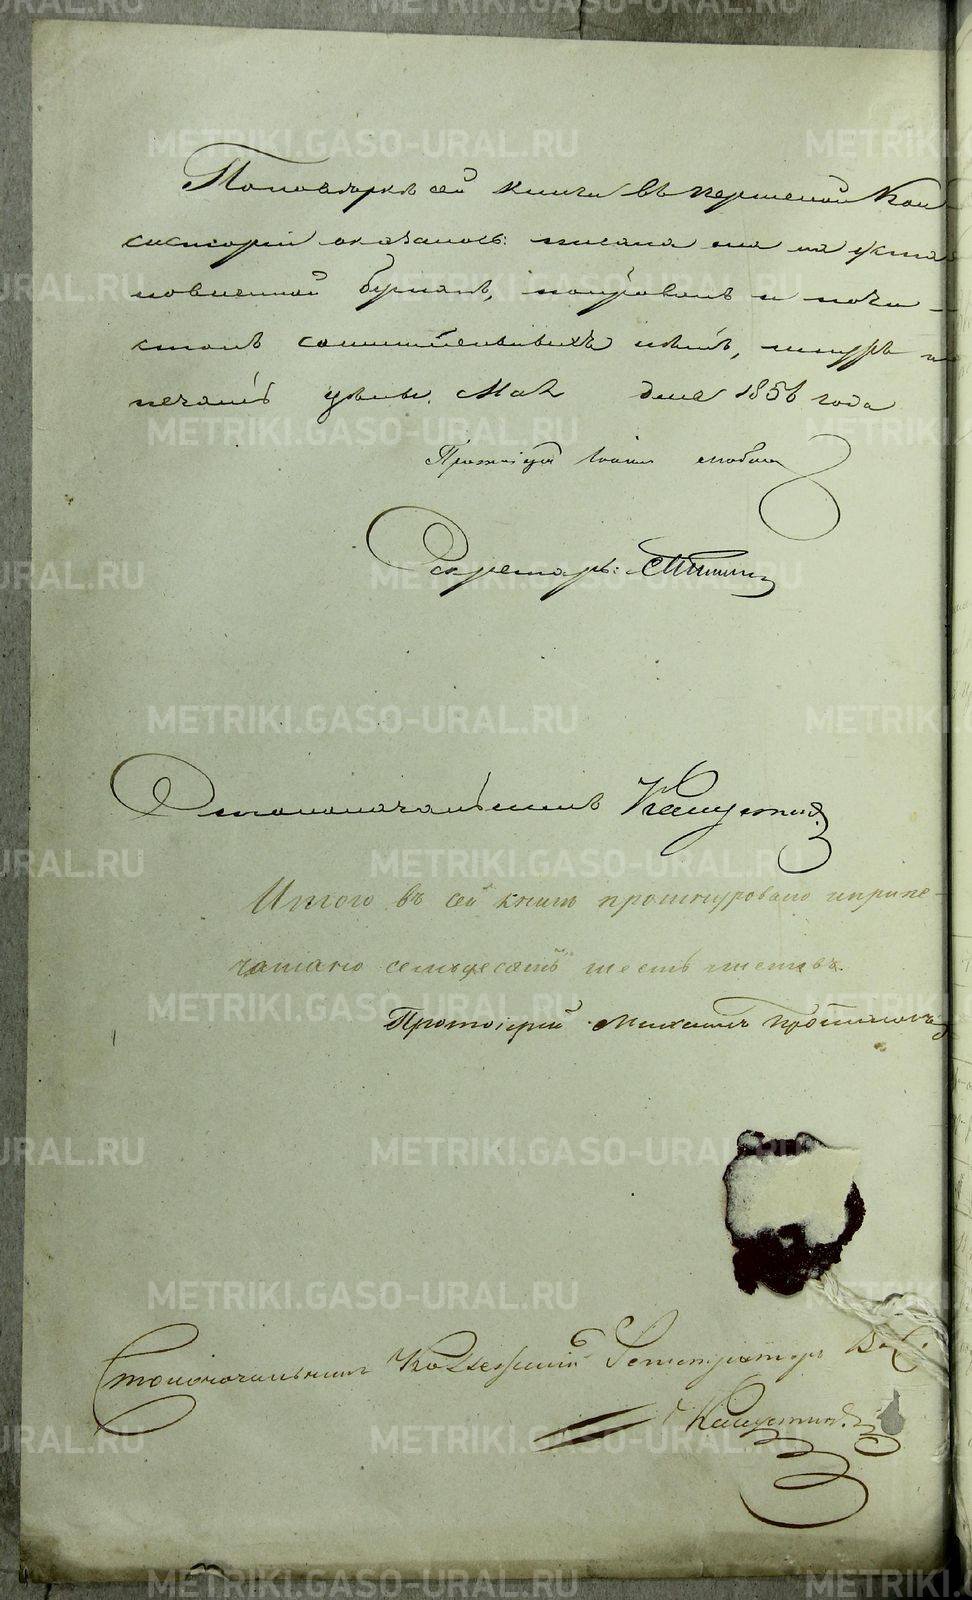 По поверкѣ сей книги въ Пермской Кон
систоріи оказалось: писана она на уста
новленной бумагѣ, поправокъ и почи-
стокъ сомнительныхъ нѣтъ, шнуръ и
печать цѣлы. Мая дня 1856 года
Протоіерей Іоаннъ
Секретарь:
Столоначальникъ Капустинъ
Итого въ сей книгѣ прошнуровано и припе-
чатано семьдесятъ шесть листовъ.
Протоіерей Михаилъ
Столоначальникъ Коллежскій Регистраторъ
Капустинъ
METRIKI.GASO-URAL.RU